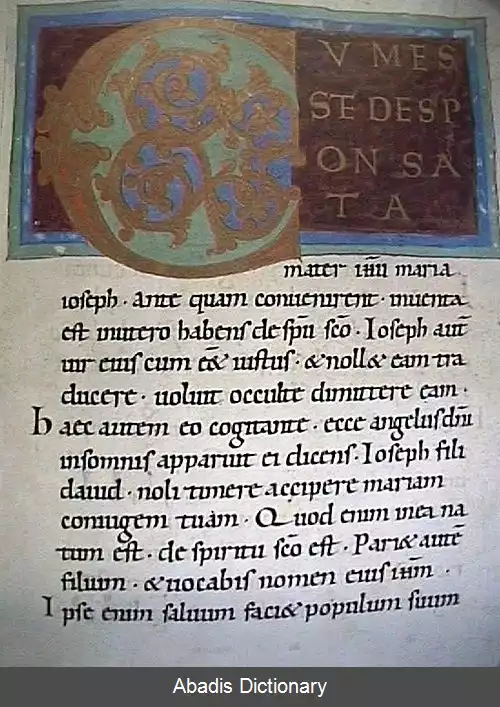 CVMES
SEDESP
ONSA
TA
mater ihu maria
ioseph · ante quam convenirent · inventa
est inutero habens despu sco · Ioseph aut
uir eius cum eet iustus · & noll& eam tra
ducere · uoluit occulte dimittere eam ·
haec autem eo cogitante · ecce angelus dni
insomnis apparuit ei dicens · Ioseph fili
dauid · noli timere accipere mariam
coniugem tuam · Quod enim inea na
tum est · de spiritu sco est · Pari& aute
filium · & uocabis nomen eius ihm ·
Ipse enim saluum faci& populum suum
Abadis Dictionary